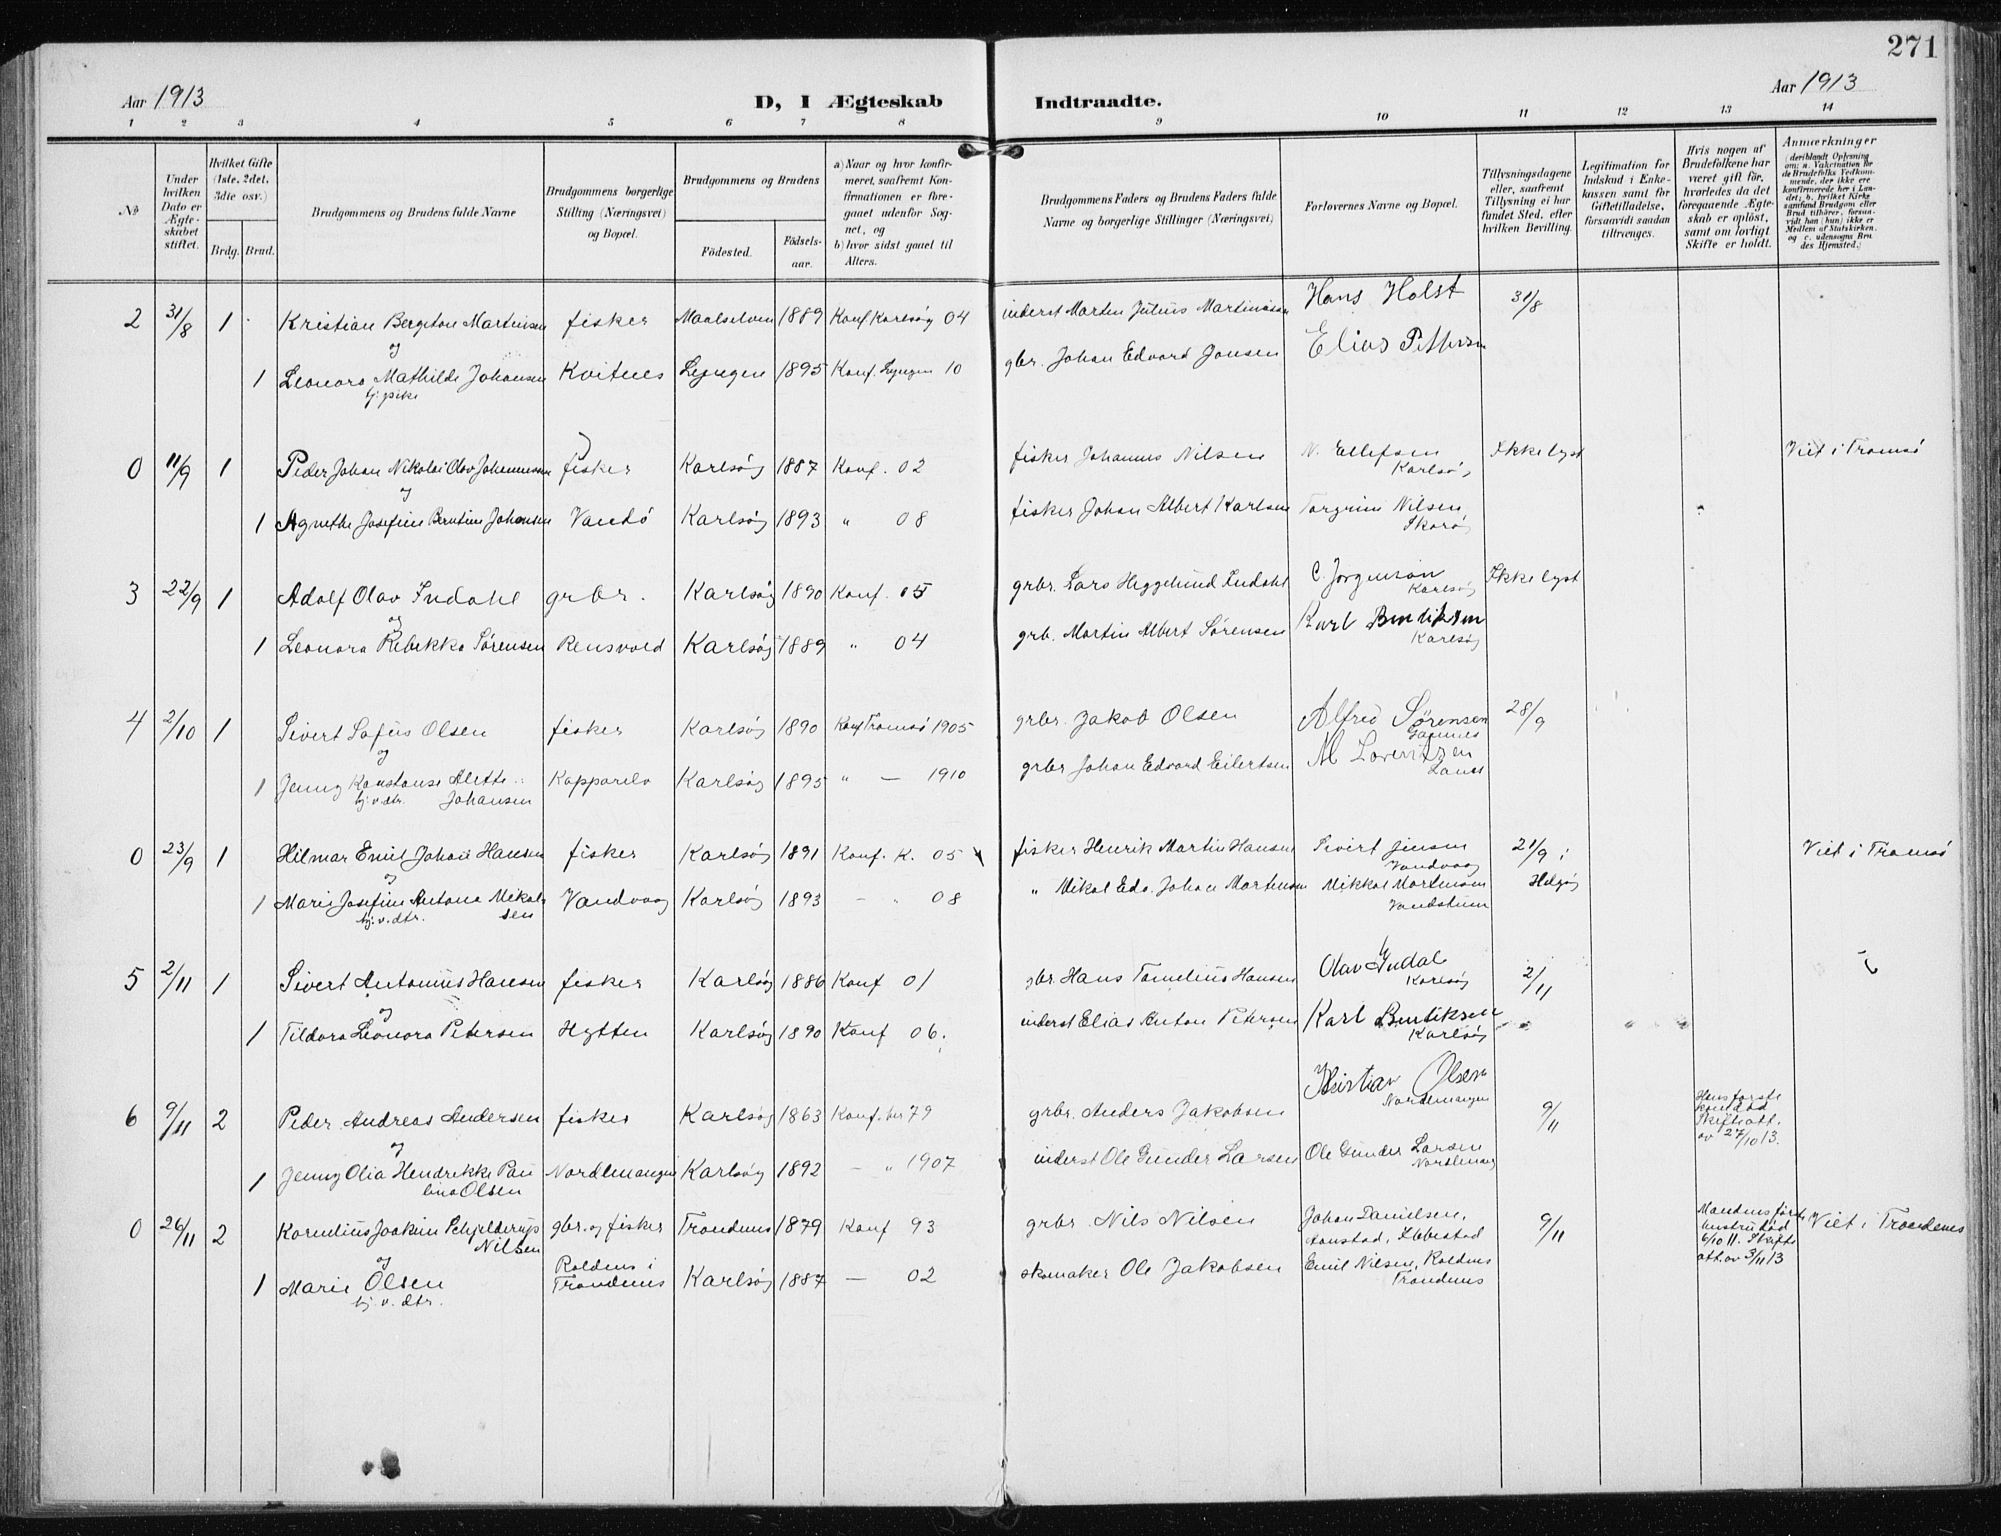 271
Aar 1913
D, I Ægteskab Indtraadte.
Aar 1913
1 2 3 4 5 6 7 8 9 10 11 12 13 14
No
Under hvilken Dato er Ægteskabet stiftet.
Hvilket Gifte (1ste, 2det, 3die osv.)
Brdg. Brud.
Brudgommens og Brudens fulde Navne
Brudgommens borgerlige Stilling (Næringsvei) og Bopæl.
Brudgommens og Brudens
Födested.
Födsels-aar.
a) Naar og hvor konfirmeret, saafremt Konfirmationen er foregaaet udenfor Sognet, og
b) hvor sidst gaaet til Alters.
Brudgommens Faders og Brudens Faders fulde Navne og borgerlige Stillinger (Næringsvei)
Forlovernes Navne og Bopæl.
Tillysningsdagene eller, saafremt Tillysning ei har fundet Sted, efter hvilken Bevilling.
Legitimation for Indskud i Enkekassen samt for Giftetilladelse, forsaavidt saadan tiltrænges.
Hvis nogen af Brudefolkene har været gift för, hvorledes da det foregaaende Ægteskab er oplöst, samt om lovligt Skifte er holdt.
Anmærkninger
(deriblandt Oplysning om: a. Vakcination for de Brudefolks Vedkommende, der ikke ere konfirmerede her i Landet; b. hvilket Kirkesamfund Brudgom eller Brud tilhörer, forsaavidt han (hun) ikke er Medlem af Statskirken, og c. udensogns Brudes Hjemsted.)
2 31/8 1 Kristian Bergiton Martinsen fisker Maalselven 1889 Konf Karlsøy 04 inderst Morten Julius Martinsen Hans Holst 31/8
og
1 Leonora Mathilde Johansen Kvitnes Lyngen 1895 Konf. Lyngen 10 gbr. Johan Edvard Jonsen Elias Pettersen
tj. pike
0 11/9 1 Peder Johan Nikolai Olav Johannessen fisker Karlsøy 1887 Konf. 02 fisker Johannes Nilsen N. Ellefsen Ikke lyst Viet i Tromsø
Karlsøy
og
1 Agnethe Josefine Berntine Johansen Vandø Karlsøy 1893 " 08 fisker Johan Albert Karlsen Torgrim Nilsen
Skorøy
3 22/9 1 Adolf Olav Indahl grbr. Karlsøy 1890 Konf. 05 grbr. Lars Heggelund Indahl C. Jørgensen Ikke lyst
Karlsøy
og
1 Leonora Rebekka Sørensen Rensvold Karlsøy 1889 " 04 grb. Martin Albert Sørensen Karl Bendiksen
Karlsøy
4 2/10 1 Sivert Sofus Olsen fisker Karlsøy 1890 Konf Tromsø 1905 grbr. Jakob Olsen Alfred Sørensen 28/9
og
1 Jenny Konstanse Alette Kopparelv Karlsøy 1895 " — 1910 grbr Johan Edvard Eilertsen M Lorentzen
tj. v. dtr. Johansen
0 23/9 1 Hilmar Emil Johan Hansen fisker Karlsøy 1891 Konf. K. 05 fisker Henrik Martin Hansen Sivert Jensen 21/9 i Viet i Tromsø
Vandvaag
og
1 Marie Josefine Antona Mikal- Vandvaag Karlsøy 1893 — " 08 " Mikal Edv. Johan Mortensen Mikkal Mortensen Helgøy
tj. v. dtr. sen Vandstuen
5 2/11 1 Sivert Antonius Hansen fisker Karlsøy 1886 Konf 01 gbr. Hans Tomelius Hansen Olav Indal 2/11
Karlsøy
og
1 Tildora Leonora Petersen Hytten Karlsøy 1890 Konf 06. inderst Elias Anton Petersen Karl Bendiksen
Karlsøy
Kristian Olsen
Nordlenangen
6 9/11 2 Peder Andreas Andersen fisker Karlsøy 1863 Konf. her 79 grbr. Anders Jakobsen 9/11 Hans første kone død Skifteatt. av 27/10 13.
og
1 Jenny Olia Hendrikke Pau Nordlenangen Karlsøy 1892 — " 1907 inderst Ole Gunder Larsen Ole Gunder Larsen
lina Olsen Nordlenang
0 26/11 2 Kornelius Joakim Schjelderup gbr. og fisker Trondenes 1879 Konf 93 grbr. Nils Nilsen Johan Danielsen, 9/11 Mandens første hustru død 6/10 11. Skifteatt. av 3/11 13 Viet i Trondenes
Nilsen Aanstad, Ibbestad
og
1 Marie Olsen Roldnes i Trondenes Karlsøy 1887 — 02 skomaker Ole Jakobsen Emil Nilsen, Roldnes
tj. v. dtr. Trondenes